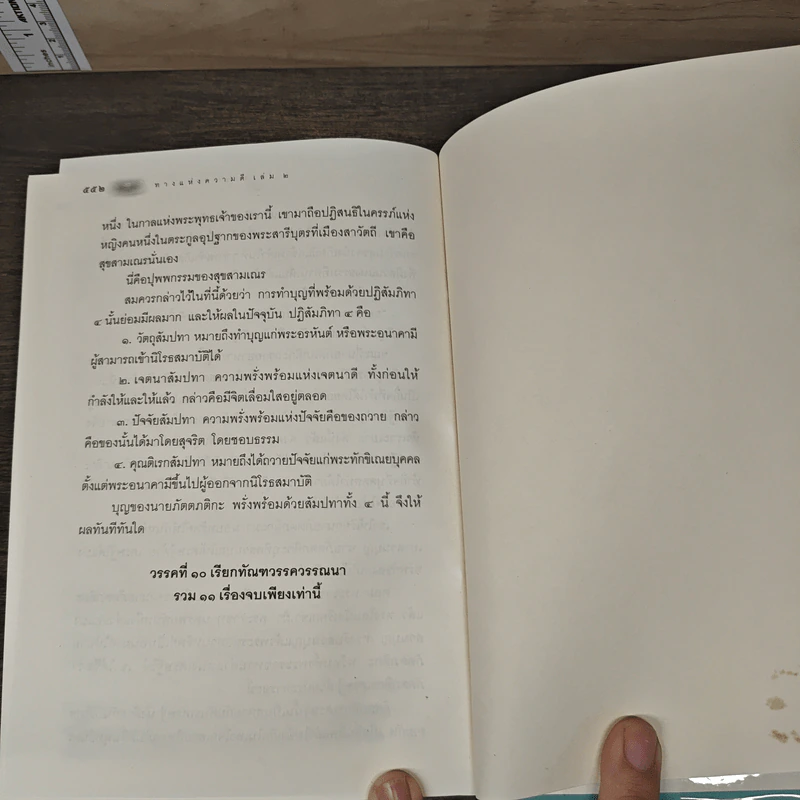 ๕๕๒ ทางแห่งความดี เล่ม ๒
หนึ่ง ในกาลแห่งพระพุทธเจ้าของเรานี้ เขามาถือปฏิสนธิในครรภ์แห่ง
หญิงคนหนึ่งในตระกูลอุปฐากของพระสารีบุตรที่เมืองสาวัตถี เขาคือ
สุขสามเณรนั่นเอง
นี่คือปุพพกรรมของสุขสามเณร
สมควรกล่าวไว้ในที่นี้ด้วยว่า การทำบุญที่พร้อมด้วยปฏิสัมภิทา
๔ นั้นย่อมมีผลมาก และให้ผลในปัจจุบัน ปฏิสัมภิทา ๔ คือ
๑. วัตถุสัมปทา หมายถึงทำบุญแก่พระอรหันต์ หรือพระอนาคามี
ผู้สามารถเข้านิโรธสมาบัติได้
๒. เจตนาสัมปทา ความพรั่งพร้อมแห่งเจตนาดี ทั้งก่อนให้
กำลังให้และให้แล้ว กล่าวคือมีจิตเลื่อมใสอยู่ตลอด
๓. ปัจจัยสัมปทา ความพรั่งพร้อมแห่งปัจจัยคือของถวาย กล่าว
คือของนั้นได้มาโดยสุจริต โดยชอบธรรม
๔. คุณติเรกสัมปทา หมายถึงได้ถวายปัจจัยแก่พระทักขิเณยบุคคล
ตั้งแต่พระอนาคามีขึ้นไปผู้ออกจากนิโรธสมาบัติ
บุญของนายภัตตภติกะ พรั่งพร้อมด้วยสัมปทาทั้ง ๔ นี้ จึงให้
ผลทันทีทันใด
วรรคที่ ๑๐ เรียกทัณฑวรรควรรณนา
รวม ๑๑ เรื่องจบเพียงเท่านี้